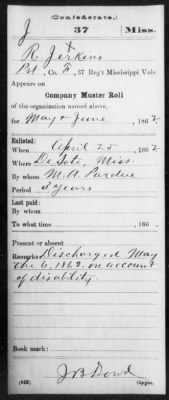 (Confederate.)
J 37 Miss.
R. Jerkens
Pvt, Co. F, 37 Reg't Mississippi Vols.
Appears on
Company Muster Roll
of the organization named above,
for May & June, 1862
Enlisted:
When April 25, 1862
Where De Soto, Miss.
By whom M. A. Pardue
Period 3 years
Last paid:
By whom
To what time , 186 .
Present or absent
Remarks: Discharged May
the 6, 1862, on account
of disability.
Book mark:
(642) J B Dowd
Copyist.